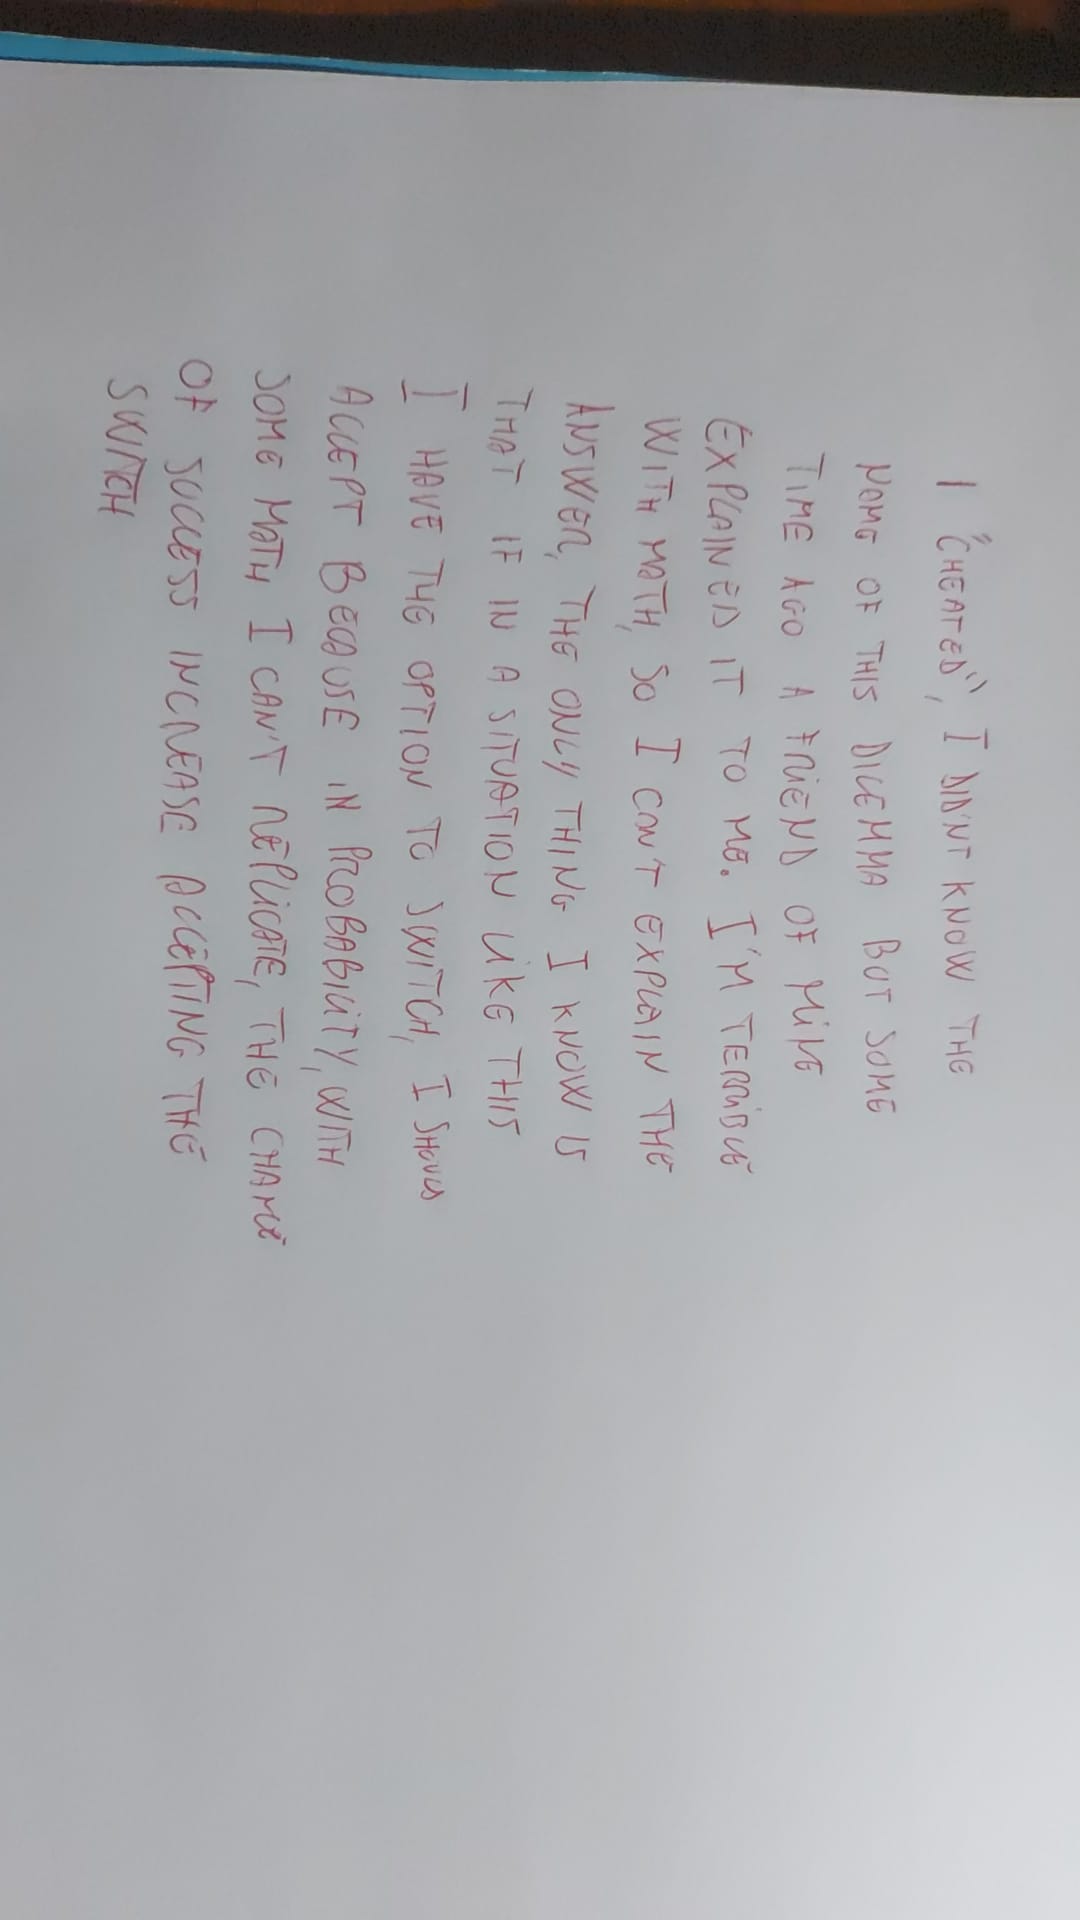 I "CHEATED", I DIDN'T KNOW THE
NAME OF THIS DILEMMA BUT SOME
TIME AGO A FRIEND OF MINE
EXPLAINED IT TO ME. I'M TERRIBLE
WITH MATH, SO I CAN'T EXPLAIN THE
ANSWER, THE ONLY THING I KNOW IS
THAT IF IN A SITUATION LIKE THIS
I HAVE THE OPTION TO SWITCH, I SHOULD
ACCEPT BECAUSE IN PROBABILITY, WITH
SOME MATH I CAN'T REPLICATE, THE CHANCE
OF SUCCESS INCREASE ACCEPTING THE
SWITCH